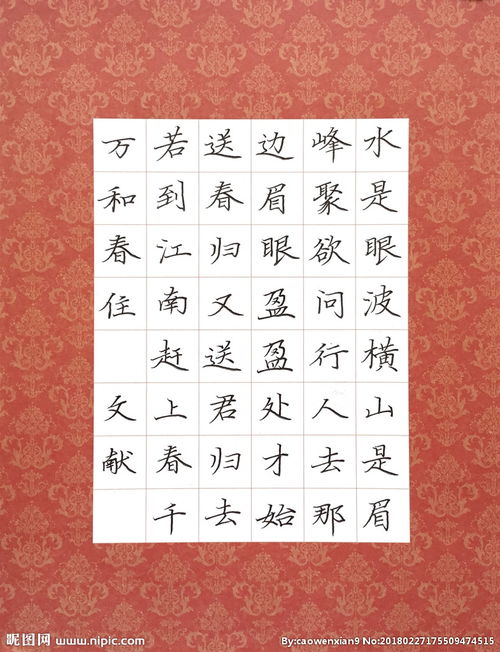 水是眼波横山是眉
峰聚欲问行人去那
边眉眼盈盈处才始
送春归又送君归去
若到江南赶上春千
万和春住 文献
昵图网 www.nipic.com
By:caowenxian9 No:20180227175509474515